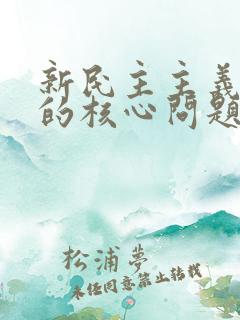 新民主主義
的核心問題
松浦夢
未经同意禁止转载